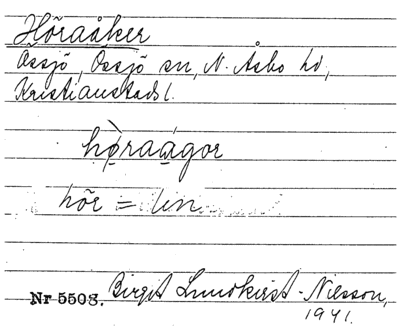 Höraåker
Össjö, Össjö sn, N. Åsbo hd,
Kristianstads l.
hø̀raágor
hör = lin
Nr 5508. Birgit Lundkvist-Nilsson,
1941.